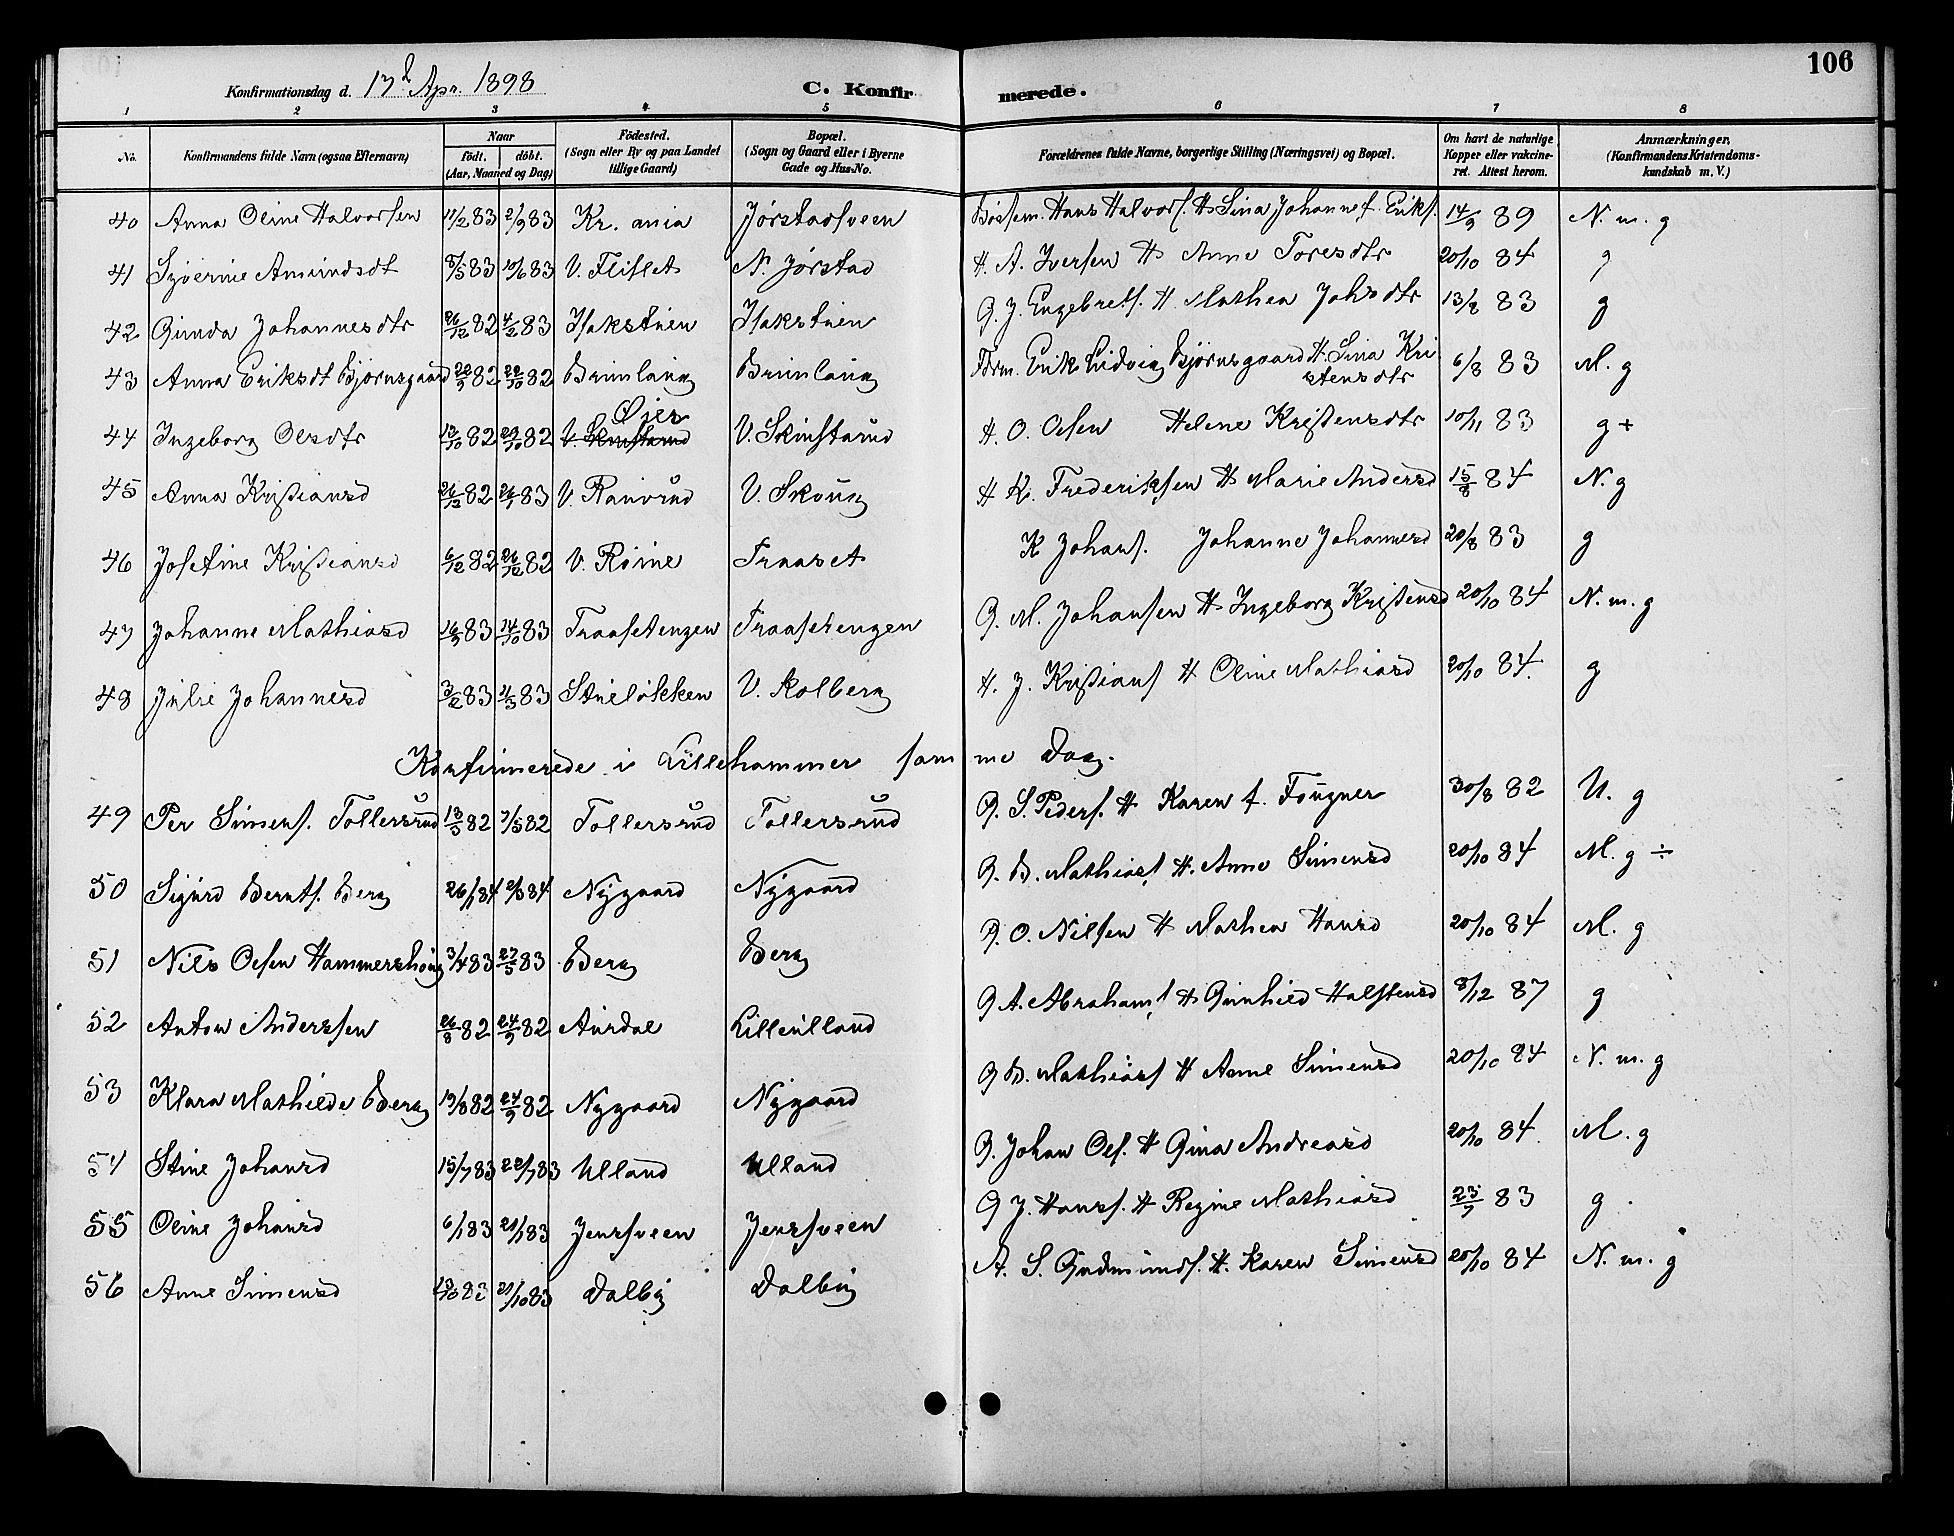 106
Konfirmationsdag d. 17d Apr. 1898 C. Konfirmerede.
1 2 3 4 5 6 7 8
No. Konfirmandens fulde Navn (ogsaa Efternavn) Naar födt. döbt. (Aar, Maaned og Dag) Födested. (Sogn eller By og paa Landet tillige Gaard) Bopæl. (Sogn og Gaard eller i Byerne Gade og Hus-No. Forældrenes fulde Navne, borgerlige Stilling (Næringsvei) og Bopæl. Om havt de naturlige Kopper eller vakcineret. Attest herom. Anmærkninger, (Konfirmandens Kristendomskundskab m. V.)
40 Anna Oline Halvorsen 11/2 83 2/9 83 Kr. ania Jørstadsveen Hans Halvors. H Lina Johannes. Eriks. 14/9 89 N. m. g
41 Amundsdt 8/5 83 10/6 83 V. Fliflet N. Jørstad H. A. Iversen H Anne Toresdtr 20/10 84 g
42 Gunda Johannesdtr 26/12 82 4/2 83 Isakstuen Isakstuen G. J. Engebrets. H Mathea Johsdtr 13/8 83 g
43 Anna Eriksdt Bjørnsgaard 22/9 82 22/10 82 Brunlaug Brunlaug Form. Erik Ludvig Bjørnsgaard H. Lina Kristensdtr 6/8 83 M. g
44 Ingeborg Olsdtr 12/10 82 29/10 82 V. Skinstarud Øier V. Skinstarud H. O. Olsen Helene Kristensdtr 10/11 83 g +
45 Anna Kristiansd 26/12 82 26/1 83 V. Ranvrud V. Skoug H K. Frederiksen H Marie Andersd 15/8 84 N. g
46 Josefine Kristiansd 6/12 82 26/12 82 V. Röine Traaset K Johans. Johanne Johannesd 20/8 83 g
47 Johanne Mathiasd 16/9 83 14/10 83 Traasetengen Traasetengen G. M. Johansen H Ingeborg Kristensd 20/10 84 N. m. g
48 Julie Johannesd 3/2 83 4/3 83 Stuelökken V. Kolberg H. J. Kristians H Oline Mathiasd 20/10 84. g
Konfirmerede i Lillehammer samme Dag.
49 Per Simens. Tollersrud 13/3 82 7/5 82 Tollersrud Tollersrud G. S. Peders. H Karen f. Fougner 30/8 82 U. g
50 Sigurd Bernts. Berg 26/1 84 2/3 84 Nygaard Nygaard G. B. Mathias. H. Anne Simensd 20/10 84 M. g ÷
51 Nils Olsen Hammershaug 3/4 83 27/5 83 Berg Berg G. O. Nilsen H Mathea Hansd 20/10 84 M. g
52 Anton Anderssen 26/8 82 24/9 82 Aurdal Lilleulland G A. Abrahams H Gunhild Halstensd 8/12 87 g
53 Klara Mathilde Berg 19/8 82 24/9 82 Nygaard Nygaard G B. Mathias H Anne Simensd 20/10 84 N. m. g
54 Stine Johansd 15/7 83 22/7 83 Ulland Ulland G. Johan Ols. H Gina Andreasd 20/10 84. M. g
55 Oline Johansd 6/1 83 21/1 83 Jensveen Jensveen G J. Hans. H Regine Mathiasd 23/7 83 g.
56 Anne Simensd 83 21/10 83 Dalby Dalby A. S. Gudmunds. H. Karen Simensd 20/10 84 N. m. g